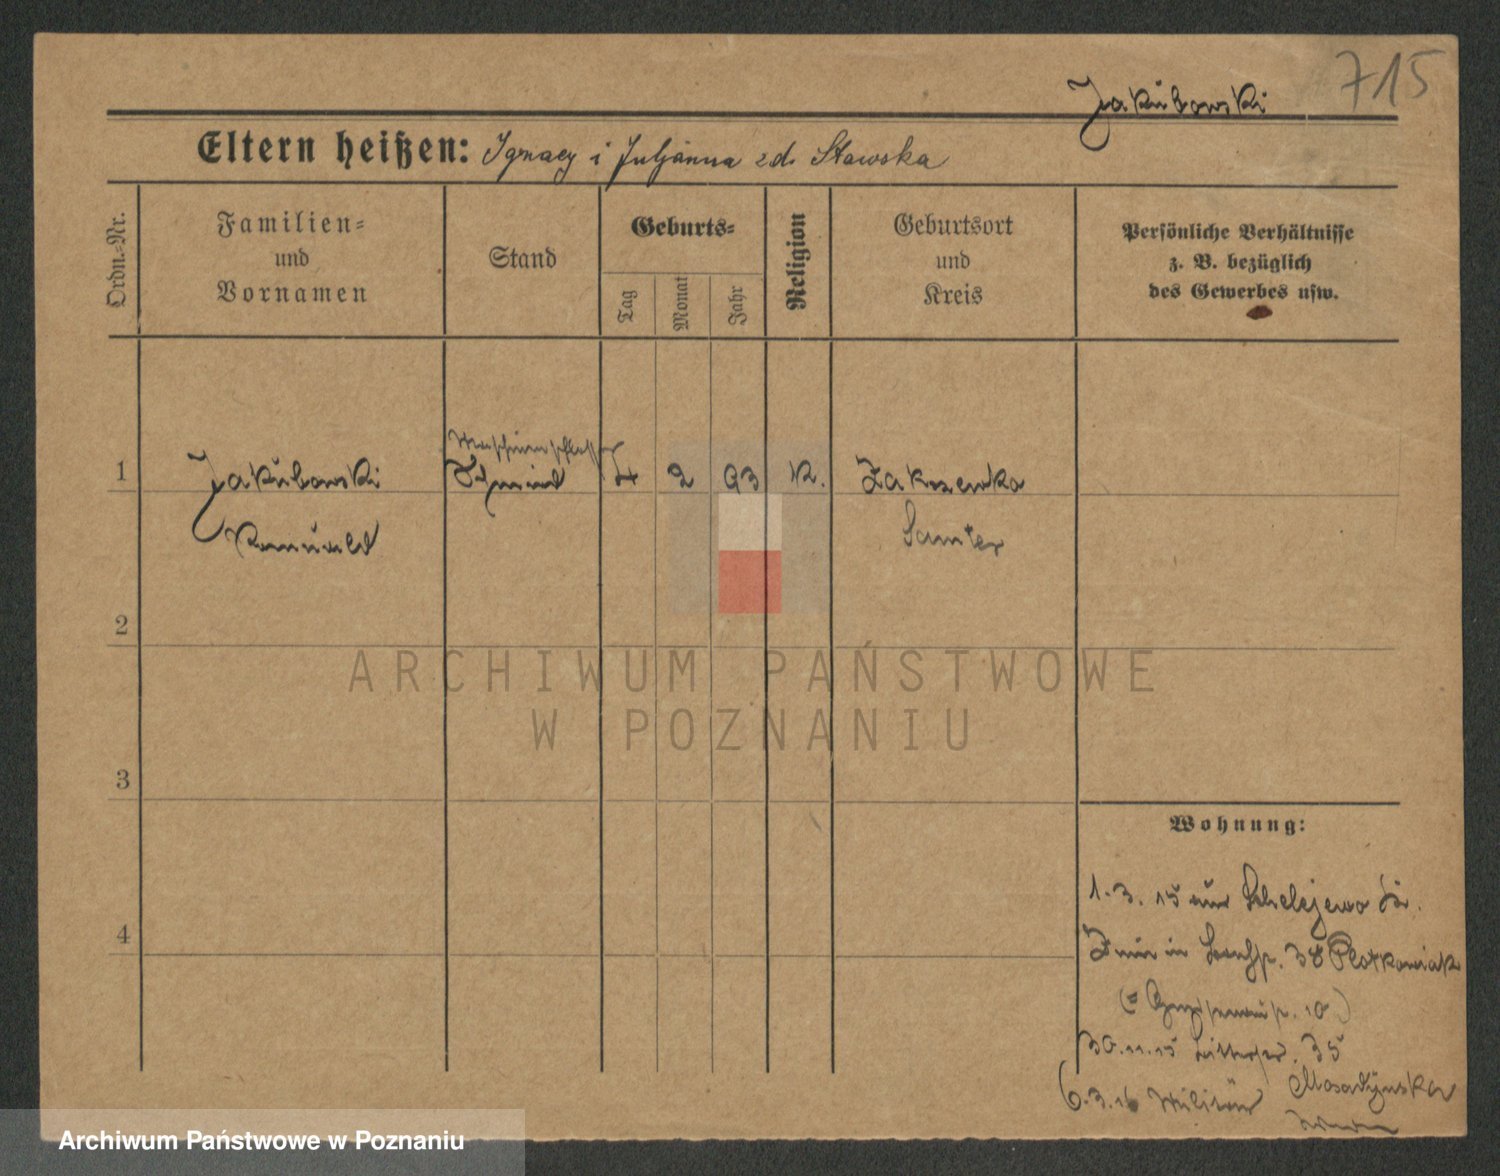 715
Jakubowski
Eltern heißen: Ignacy i Juljanna zd. Stawska
Ordn.-Nr.
Familien-
und
Vornamen
Stand
Geburts-
Tag
Monat
Jahr
Religion
Geburtsort
und
Kreis
Persönliche Verhältnisse
z. B. bezüglich
des Gewerbes usw.
Maschinenschlosser
1 Jakubowski Schmied 4 2 93 K. Zakrzewko
Romuald Samter
2
3
4
Wohnung:
1.3.15 aus Schelejewo Kr.
Znin in 38 Plotkowiak
30.11.15 35
6.3.16 Militär
ARCHIWUM PAŃSTWOWE
W POZNANIU
Archiwum Państwowe w Poznaniu